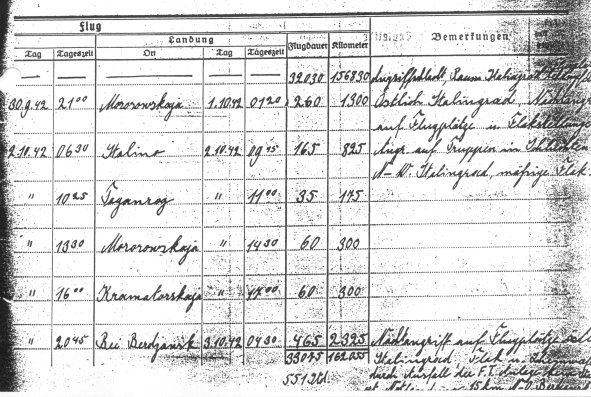 Flug
Landung
Tag Tageszeit Ort Tag Tageszeit Flugdauer Kilometer Bemerkungen
— — — — — 32030 156830 Raum Stalingrad
30.9.42 21 00 Morosowskaja 1.10.42 01 20 260 1300 Östlich Stalingrad, Nachtangr
auf Flugplätze u. Flakstellungen
2.10.42 06 30 Stalino 2.10.42 09 15 165 825 Angr. auf Truppen im
N-W. Stalingrad, mäßige Flak.
" 10 25 Taganrog " 11 00 35 175
" 13 30 Morosowskaja " 14 30 60 300
" 16 00 Kramatorskaja " 17 00 60 300
" 20 45 Bei Berdjansk 3.10.42 04 30 465 2325 Nachtangriff auf Flugplätze
33075 162055 Stalingrad. Flak u.
551 durch der F.T.
15 km N-O.